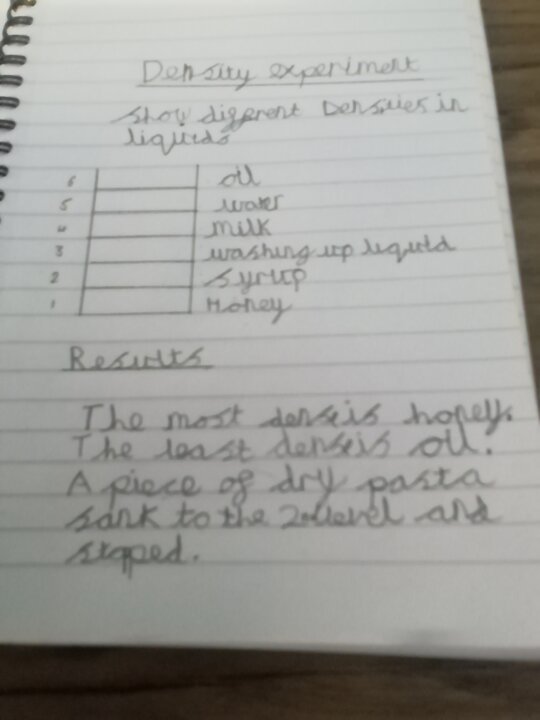 Density experiment
Show different Densies in
liquids
6 oil
5 water
4 milk
3 washing up liquid
2 syrup
1 Honey
Results
The most dense is honey.
The least dense is oil.
A piece of dry pasta
sank to the 2nd level and
stopped.